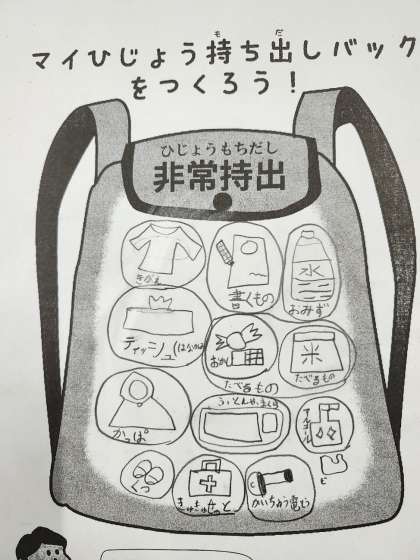 マイひじょう持ち出しバック
をつくろう！
ひじょうもちだし
非常持出
きがえ
書くもの
水
おみず
ティッシュ(はなかみ)
おかし
たべるもの
米
たべるもの
かっぱ
アルコール
くつ
きゅうきゅうせっと
かいちゅう電とう